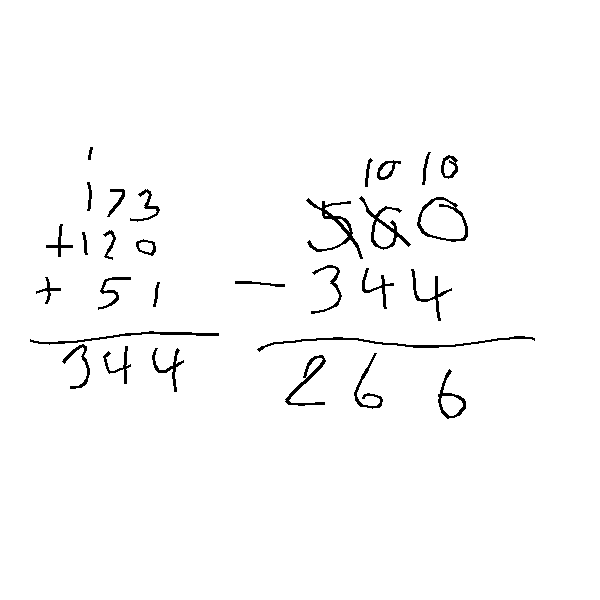 1
173
+120
+ 51
344
10 10
500
- 344
266